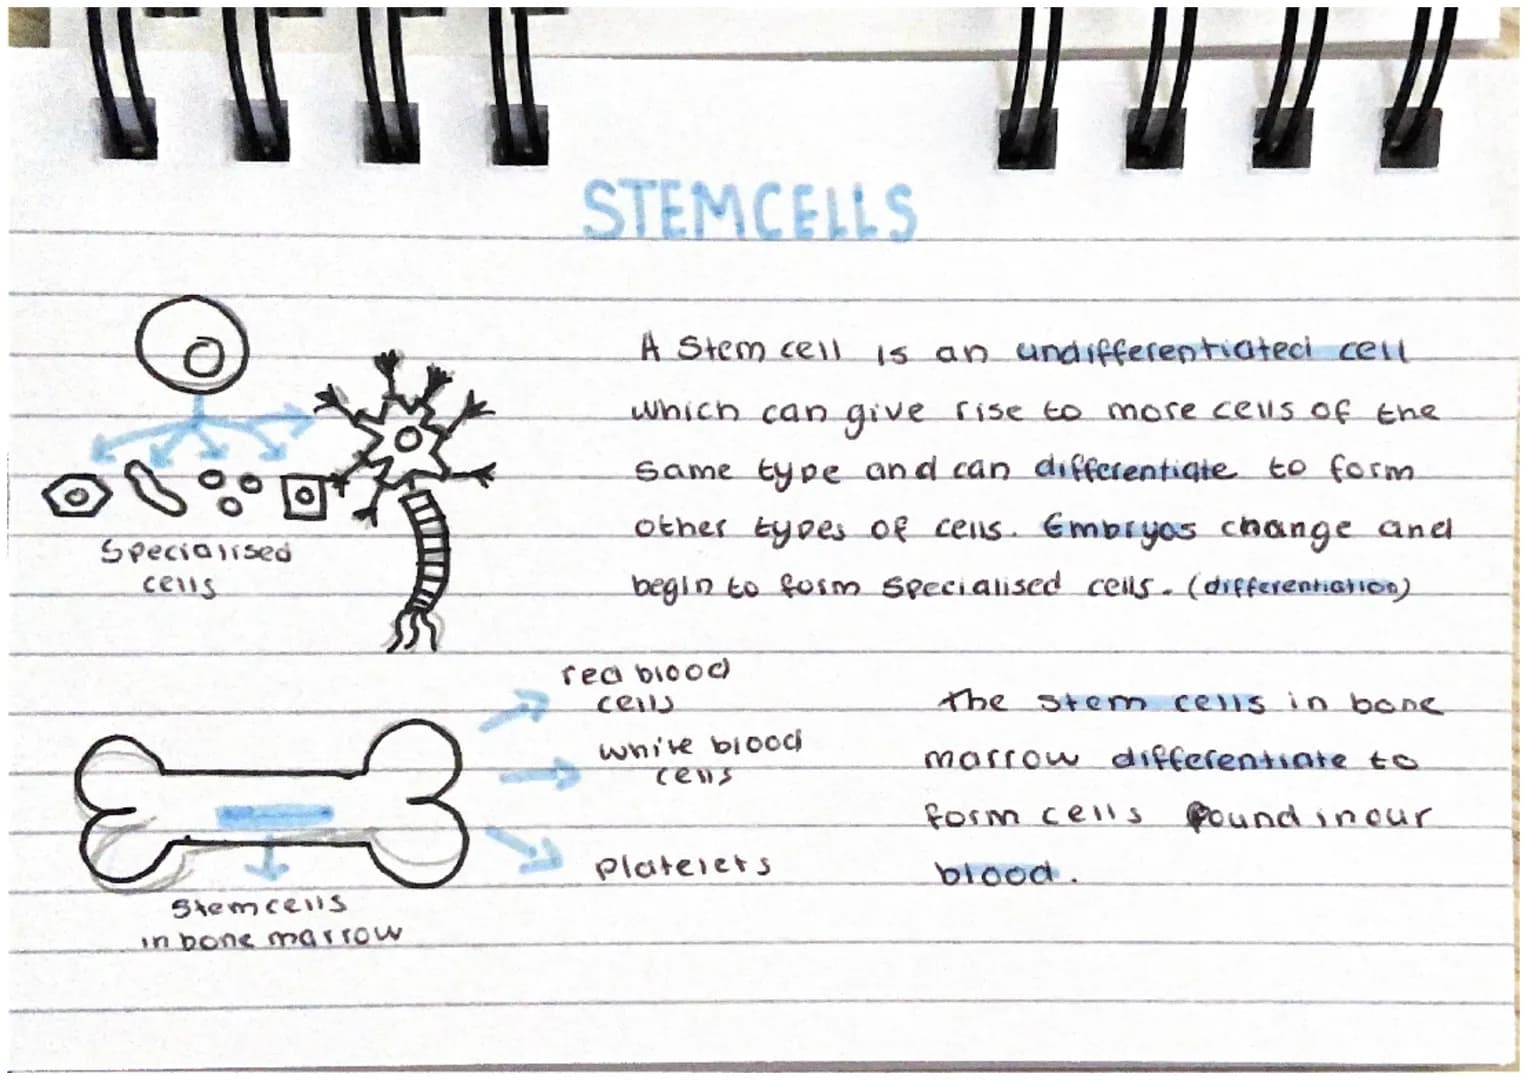 STEMCELLS
A Stem cell is an undifferentiated cell
which can give rise to more cells of the
same type and can differentiate to form
other types of cells. Embryos change and
begin to form specialised cells. (differentiation)
Specialised
cells
red blood
cells
white blood
cells
platelets
Stem cells
in bone marrow
The stem cells in bone
marrow differentiate to
form cells found in our
blood.